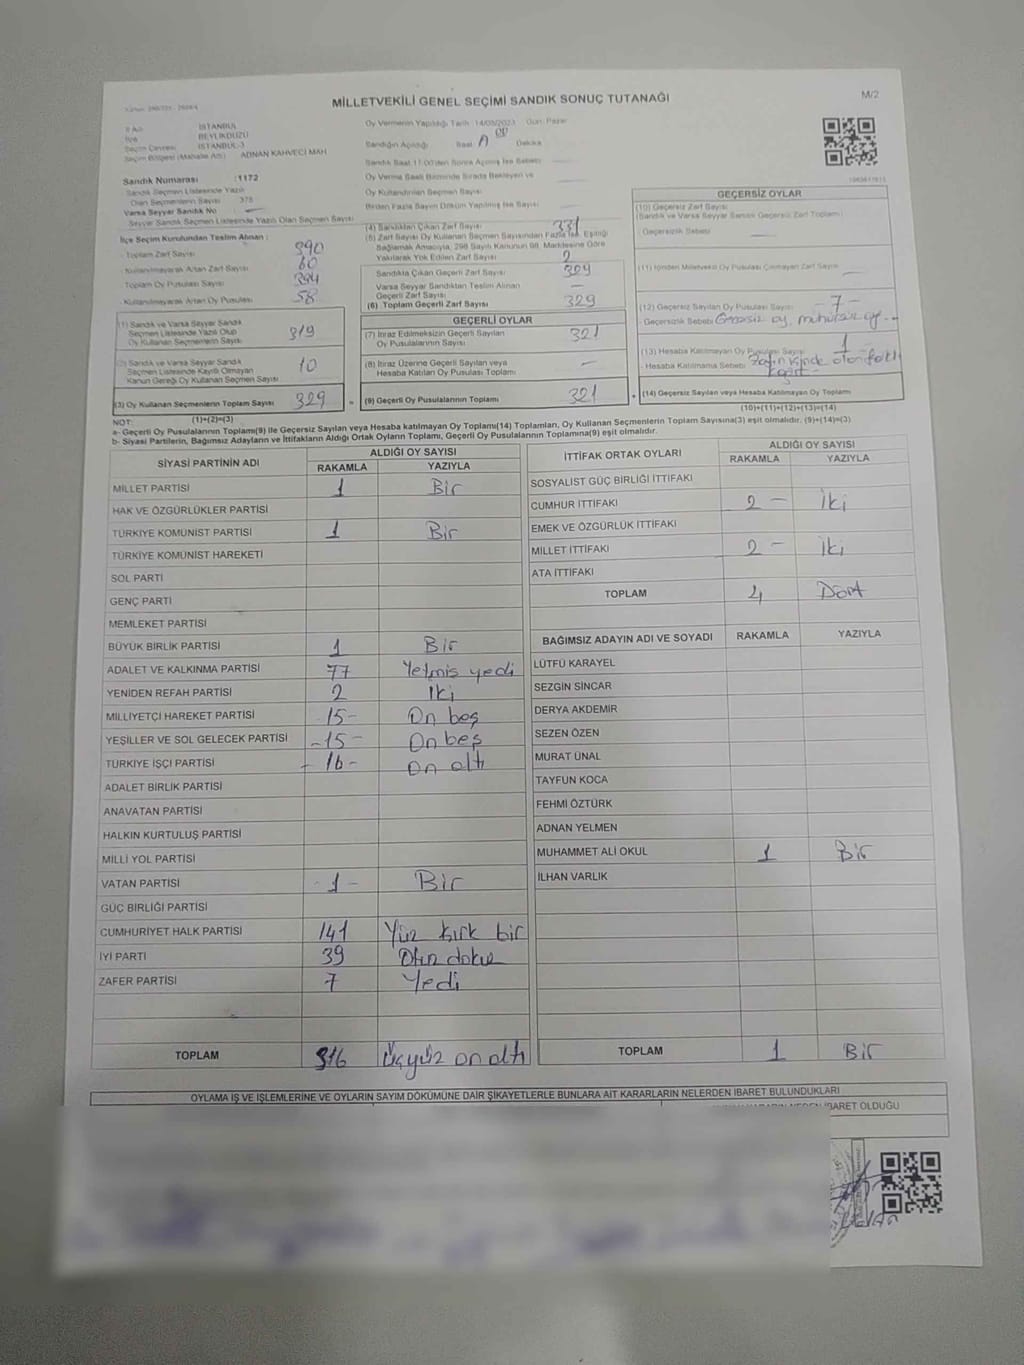 MİLLETVEKİLİ GENEL SEÇİMİ SANDIK SONUÇ TUTANAĞI
M/2
İl Adı İSTANBUL
İlçe BEYLİKDÜZÜ
Seçim Çevresi İSTANBUL-3
Seçim Bölgesi (Mahalle Adı) ADNAN KAHVECİ MAH
Sandık Numarası :1172
Sandık Seçmen Listesinde Yazılı
Olan Seçmenlerin Sayısı 378
Varsa Seyyar Sandık No
Seyyar Sandık Seçmen Listesinde Yazılı Olan Seçmen Sayısı
İlçe Seçim Kurulundan Teslim Alınan :
- Toplam Zarf Sayısı 390
- Kullanılmayarak Artan Zarf Sayısı 60
Toplam Oy Pusulası Sayısı
- Kullanılmayarak Artan Oy Pusulası 58
(1) Sandık ve Varsa Seyyar Sandık
Seçmen Listesinde Yazılı Olup
Oy Kullanan Seçmenlerin Sayısı 319
(2) Sandık ve Varsa Seyyar Sandık
Seçmen Listesinde Kayıtlı Olmayan
Kanun Gereği Oy Kullanan Seçmen Sayısı 10
(3) Oy Kullanan Seçmenlerin Toplam Sayısı 329
Oy Vermenin Yapıldığı Tarih :14/05/2023 Gün: Pazar
Sandığın Açıldığı Saat Dakika
Sandık Saat 17:00'den Sonra Açılmış İse Sebebi
Oy Verme Saati Bitiminde Sırada Bekleyen ve
Oy Kullandırılan Seçmen Sayısı
Birden Fazla Sayım Döküm Yapılmış İse Sayısı
(4) Sandıktan Çıkan Zarf Sayısı 331
(5) Zarf Sayısı Oy Kullanan Seçmen Sayısından Fazla İse, Eşitliği
Sağlamak Amacıyla, 298 Sayılı Kanunun 98. Maddesine Göre
Yakılarak Yok Edilen Zarf Sayısı 2
Sandıkta Çıkan Geçerli Zarf Sayısı 329
Varsa Seyyar Sandıktan Teslim Alınan
Geçerli Zarf Sayısı —
(6) Toplam Geçerli Zarf Sayısı 329
GEÇERLİ OYLAR
(7) İtiraz Edilmeksizin Geçerli Sayılan
Oy Pusulalarının Sayısı 321
(8) İtiraz Üzerine Geçerli Sayılan veya
Hesaba Katılan Oy Pusulası Toplamı —
= (9) Geçerli Oy Pusulalarının Toplamı 321
GEÇERSİZ OYLAR
(10) Geçersiz Zarf Sayısı
(Sandık ve Varsa Seyyar Sandık Geçersiz Zarf Toplamı)
Geçersizlik Sebebi —
(11) İçinden Milletvekili Oy Pusulası Çıkmayan Zarf Sayısı —
(12) Geçersiz Sayılan Oy Pusulası Sayısı -7-
- Geçersizlik Sebebi Geçersiz oy, mühürsüz oy
(13) Hesaba Katılmayan Oy Pusulası Sayısı 1
- Hesaba Katılmama Sebebi Zarfın içinde olan farklı
kağıt
+ (14) Geçersiz Sayılan veya Hesaba Katılmayan Oy Toplamı
(10)+(11)+(12)+(13)=(14)
NOT: (1)+(2)=(3)
a- Geçerli Oy Pusulalarının Toplamı(9) ile Geçersiz Sayılan veya Hesaba katılmayan Oy Toplamı(14) Toplamları, Oy Kullanan Seçmenlerin Toplam Sayısına(3) eşit olmalıdır. (9)+(14)=(3)
b- Siyasi Partilerin, Bağımsız Adayların ve İttifakların Aldığı Ortak Oyların Toplamı, Geçerli Oy Pusulalarının Toplamına(9) eşit olmalıdır.
SİYASİ PARTİNİN ADI ALDIĞI OY SAYISI
RAKAMLA YAZIYLA
MİLLET PARTİSİ 1 Bir
HAK VE ÖZGÜRLÜKLER PARTİSİ
TÜRKİYE KOMÜNİST PARTİSİ 1 Bir
TÜRKİYE KOMÜNİST HAREKETİ
SOL PARTİ
GENÇ PARTİ
MEMLEKET PARTİSİ
BÜYÜK BİRLİK PARTİSİ 1 Bir
ADALET VE KALKINMA PARTİSİ 77 Yetmiş yedi
YENİDEN REFAH PARTİSİ 2 İki
MİLLİYETÇİ HAREKET PARTİSİ -15- On beş
YEŞİLLER VE SOL GELECEK PARTİSİ -15- On beş
TÜRKİYE İŞÇİ PARTİSİ - 16- On altı
ADALET BİRLİK PARTİSİ
ANAVATAN PARTİSİ
HALKIN KURTULUŞ PARTİSİ
MİLLİ YOL PARTİSİ
VATAN PARTİSİ -1- Bir
GÜÇ BİRLİĞİ PARTİSİ
CUMHURİYET HALK PARTİSİ 141 Yüz kırk bir
İYİ PARTİ 39 Otuz dokuz
ZAFER PARTİSİ 7 Yedi
TOPLAM 316 Üçyüz on altı
İTTİFAK ORTAK OYLARI ALDIĞI OY SAYISI
RAKAMLA YAZIYLA
SOSYALİST GÜÇ BİRLİĞİ İTTİFAKI
CUMHUR İTTİFAKI 2 - İki
EMEK VE ÖZGÜRLÜK İTTİFAKI
MİLLET İTTİFAKI 2 - İki
ATA İTTİFAKI
TOPLAM 4 Dört
BAĞIMSIZ ADAYIN ADI VE SOYADI RAKAMLA YAZIYLA
LÜTFÜ KARAYEL
SEZGİN SİNCAR
DERYA AKDEMİR
SEZEN ÖZEN
MURAT ÜNAL
TAYFUN KOCA
FEHMİ ÖZTÜRK
ADNAN YELMEN
MUHAMMET ALİ OKUL 1 Bir
İLHAN VARLIK
TOPLAM 1 Bir
OYLAMA İŞ VE İŞLEMLERİNE VE OYLARIN SAYIM DÖKÜMÜNE DAİR ŞİKAYETLERLE BUNLARA AİT KARARLARIN NELERDEN İBARET BULUNDUKLARI
İBARET OLDUĞU